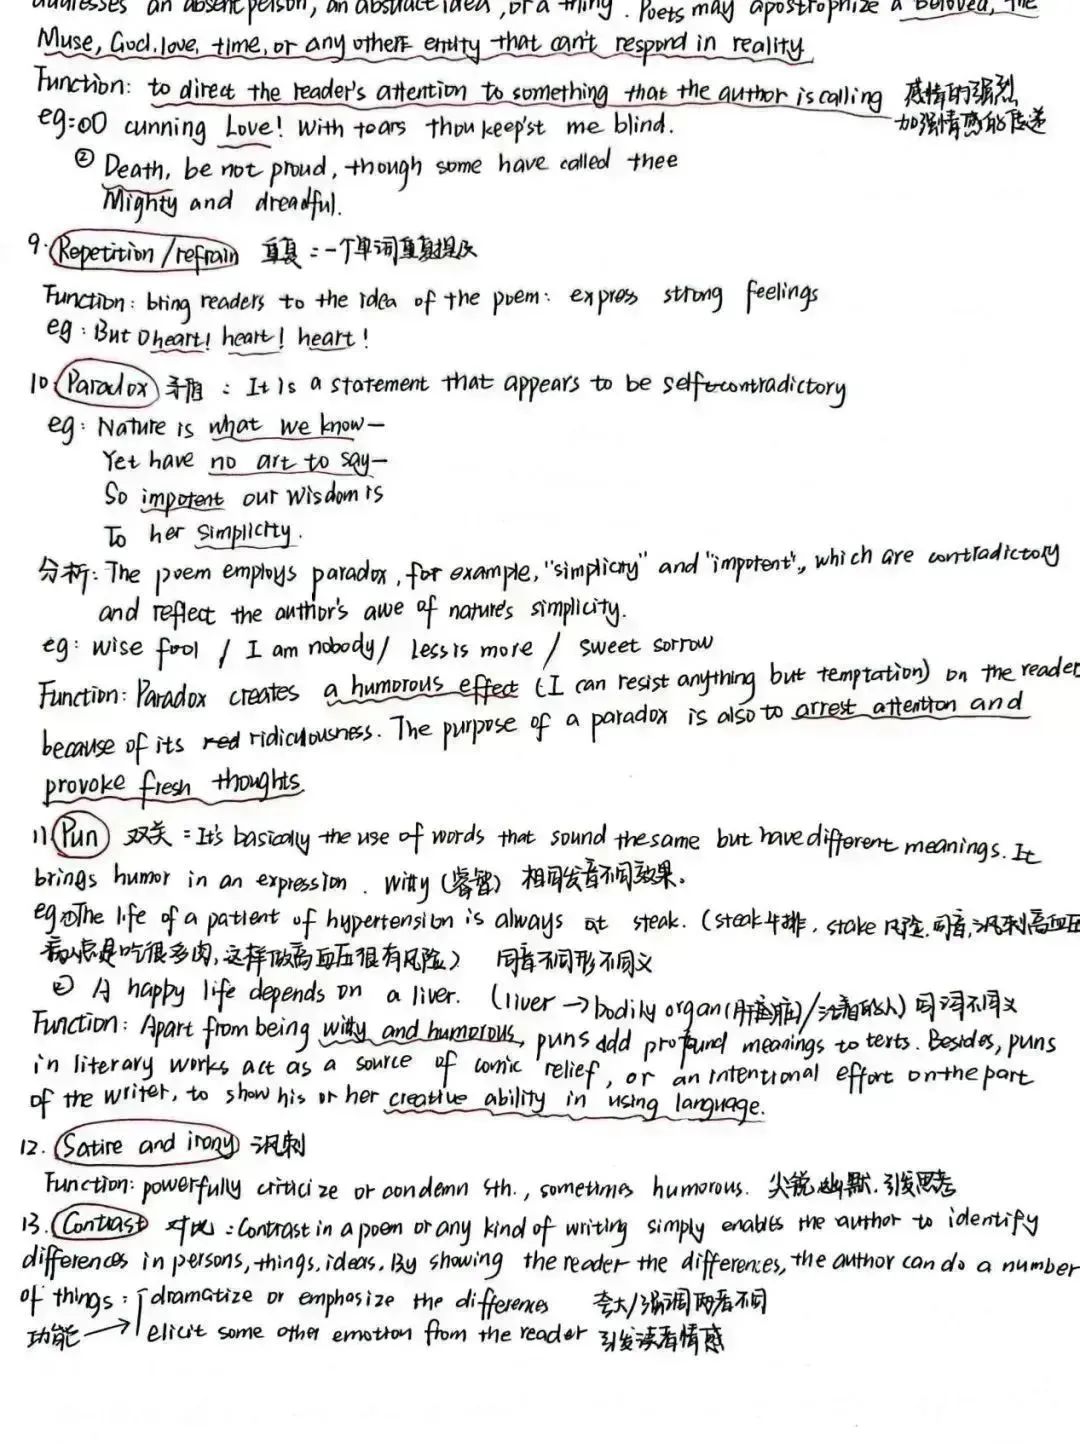 addresses an absent person, an abstract idea, or a thing. Poets may apostrophize a beloved, the
Muse, God, love, time, or any other entity that can't respond in reality
Function: to direct the reader's attention to something that the author is calling 感情的强烈
加强情感的传递
eg:① O cunning Love! With tears thou keep'st me blind.
② Death, be not proud, though some have called thee
Mighty and dreadful.
9. Repetition/refrain 重复:一个单词重复提及
Function: bring readers to the idea of the poem: express strong feelings
eg: But O heart! heart! heart!
10. Paradox 矛盾: It is a statement that appears to be self-contradictory
eg: Nature is what we know—
Yet have no art to say—
So impotent our wisdom is
To her simplicity.
分析: The poem employs paradox, for example, "simplicity" and "impotent", which are contradictory
and reflect the author's awe of nature's simplicity.
eg: wise fool / I am nobody / Less is more / sweet sorrow
Function: Paradox creates a humorous effect (I can resist anything but temptation) on the reader
because of its ridiculousness. The purpose of a paradox is also to arrest attention and
provoke fresh thoughts.
11. Pun 双关: It's basically the use of words that sound the same but have different meanings. It
brings humor in an expression. witty (睿智) 相同发音不同效果.
eg ① The life of a patient of hypertension is always at steak. (steak 牛排, stake 风险, 同音, 讽刺高血压
病人总是吃很多肉,这样做高血压很有风险) 同音不同形不同义
② A happy life depends on a liver. (liver → bodily organ(肝脏)/活着的人) 同词不同义
Function: Apart from being witty and humorous, puns add profound meanings to texts. Besides, puns
in literary works act as a source of comic relief, or an intentional effort on the part
of the writer, to show his or her creative ability in using language.
12. Satire and irony 讽刺
Function: powerfully criticize or condemn sth., sometimes humorous. 尖锐幽默.引发思考
13. Contrast 对比: Contrast in a poem or any kind of writing simply enables the author to identify
differences in persons, things, ideas. By showing the reader the differences, the author can do a number
of things: dramatize or emphasize the differences 夸大/强调两者不同
功能 → elicit some other emotion from the reader 引发读者情感